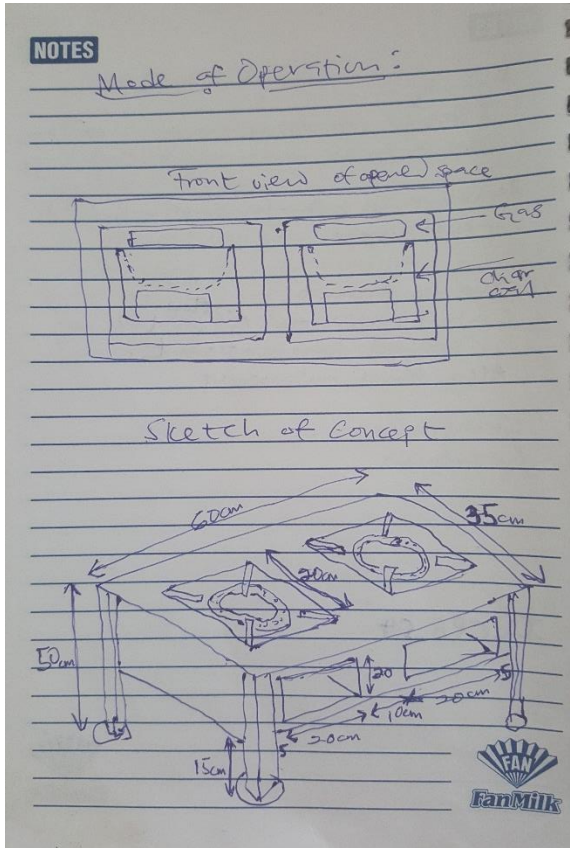 NOTES
Mode of Operation:
Front view of opened space
Gas
charcoal
Sketch of Concept
60cm
35cm
20cm
50cm
20
5
20cm
10cm
20cm
5
15cm
FAN
FanMilk